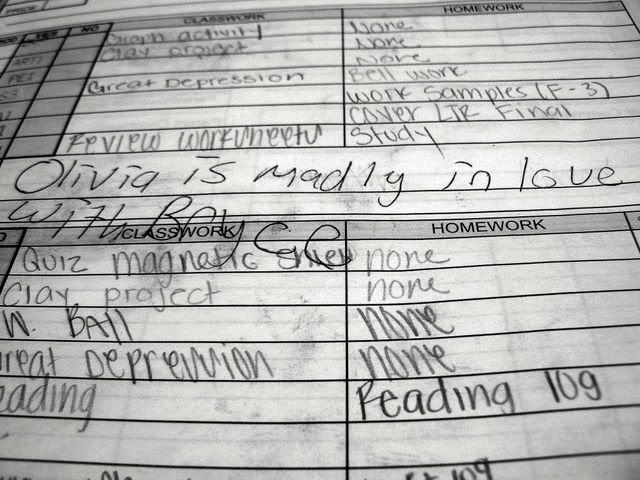 CLASSWORK HOMEWORK
YES NO Graph activity None
ART1 Clay project None
PEI None
Great Depression Bell work
Work Samples (F-3)
Cover LTR Final
Review worksheets Study
Olivia is madly in love
with Ray
CLASSWORK HOMEWORK
Quiz magnetic none
Clay project none
W. Ball none
reat Depression none
eading Reading 109
109